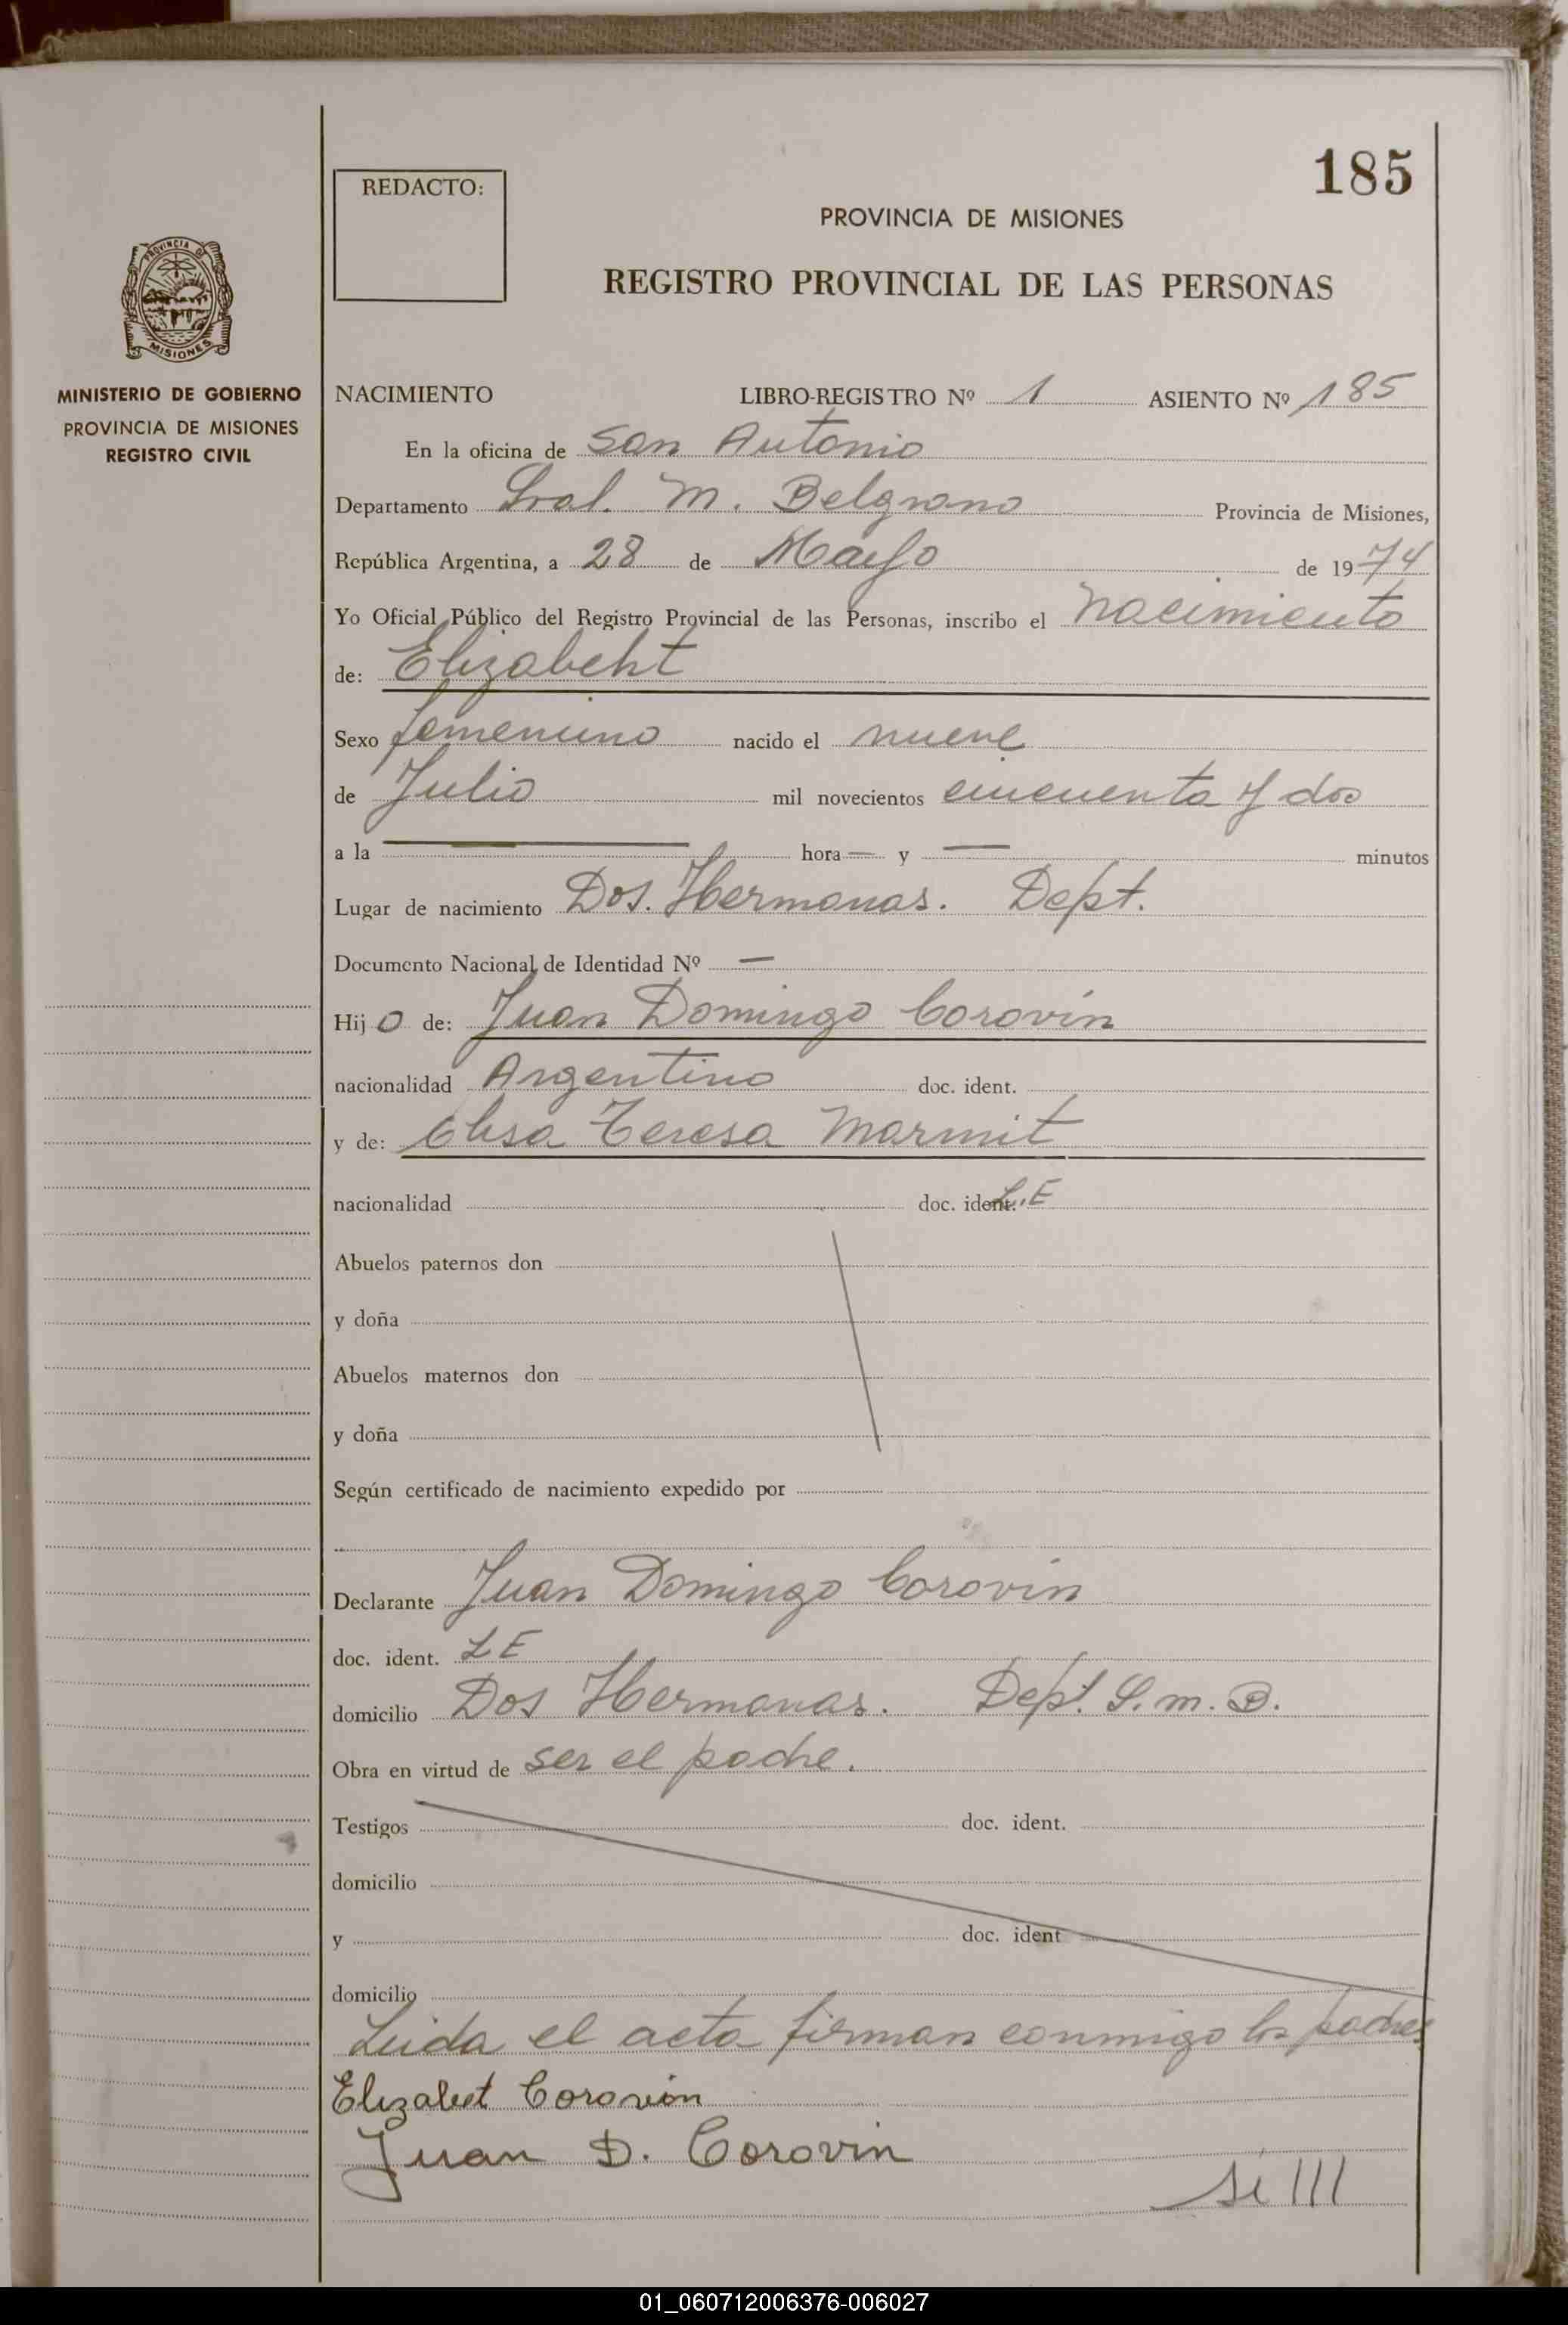 185
REDACTO:
PROVINCIA DE MISIONES
REGISTRO PROVINCIAL DE LAS PERSONAS
PROVINCIA DE
MISIONES
MINISTERIO DE GOBIERNO
PROVINCIA DE MISIONES
REGISTRO CIVIL
NACIMIENTO LIBRO-REGISTRO Nº 1 ASIENTO Nº 185
En la oficina de San Antonio
Departamento Gral. M. Belgrano Provincia de Misiones,
República Argentina, a 28 de Mayo de 1974
Yo Oficial Público del Registro Provincial de las Personas, inscribo el nacimiento
de: Elizabeht
Sexo femenino nacido el nueve
de Julio mil novecientos cincuenta y dos
a la — hora — y — minutos
Lugar de nacimiento Dos. Hermanas. Dept.
Documento Nacional de Identidad Nº —
Hijo de: Juan Domingo Corovin
nacionalidad Argentino doc. ident.
y de: Elisa Teresa Marmit
nacionalidad doc. ident. L.E
Abuelos paternos don
y doña
Abuelos maternos don
y doña
Según certificado de nacimiento expedido por
Declarante Juan Domingo Corovin
doc. ident. LE
domicilio Dos Hermanas. Dept. G. M. B.
Obra en virtud de ser el padre.
Testigos doc. ident.
domicilio
y doc. ident
domicilio
Leida el acta firman conmigo los padres
Elizabet Corovin
Juan D. Corovin
01_060712006376-006027